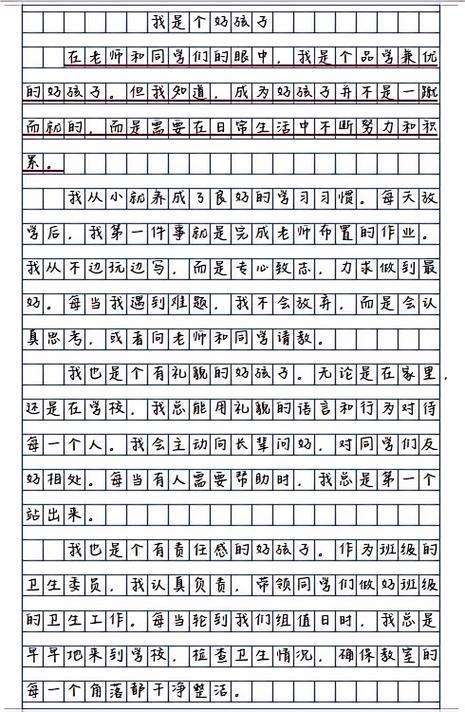 我是个好孩子
在老师和同学们的眼中，我是个品学兼优
的好孩子。但我知道，成为好孩子并不是一蹴
而就的，而是需要在日常生活中不断努力和积
累。
我从小就养成了良好的学习习惯。每天放
学后，我第一件事就是完成老师布置的作业。
我从不边玩边写，而是专心致志，力求做到最
好。每当我遇到难题，我不会放弃，而是会认
真思考，或者向老师和同学请教。
我也是个有礼貌的好孩子。无论是在家里，
还是在学校，我总能用礼貌的语言和行为对待
每一个人。我会主动向长辈问好，对同学们友
好相处。每当有人需要帮助时，我总是第一个
站出来。
我也是个有责任感的好孩子。作为班级的
卫生委员，我认真负责，带领同学们做好班级
的卫生工作。每当轮到我们组值日时，我总是
早早地来到学校，检查卫生情况，确保教室的
每一个角落都干净整洁。